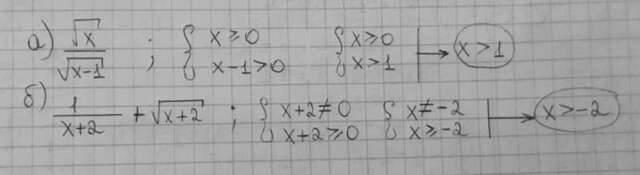 а) √x / √(x-1) ; { x≥0 { x≥0 | → x>1
{ x-1>0 { x>1
б) 1/(x+2) + √(x+2) ; { x+2≠0 { x≠-2 | → x>-2
{ x+2≥0 { x≥-2